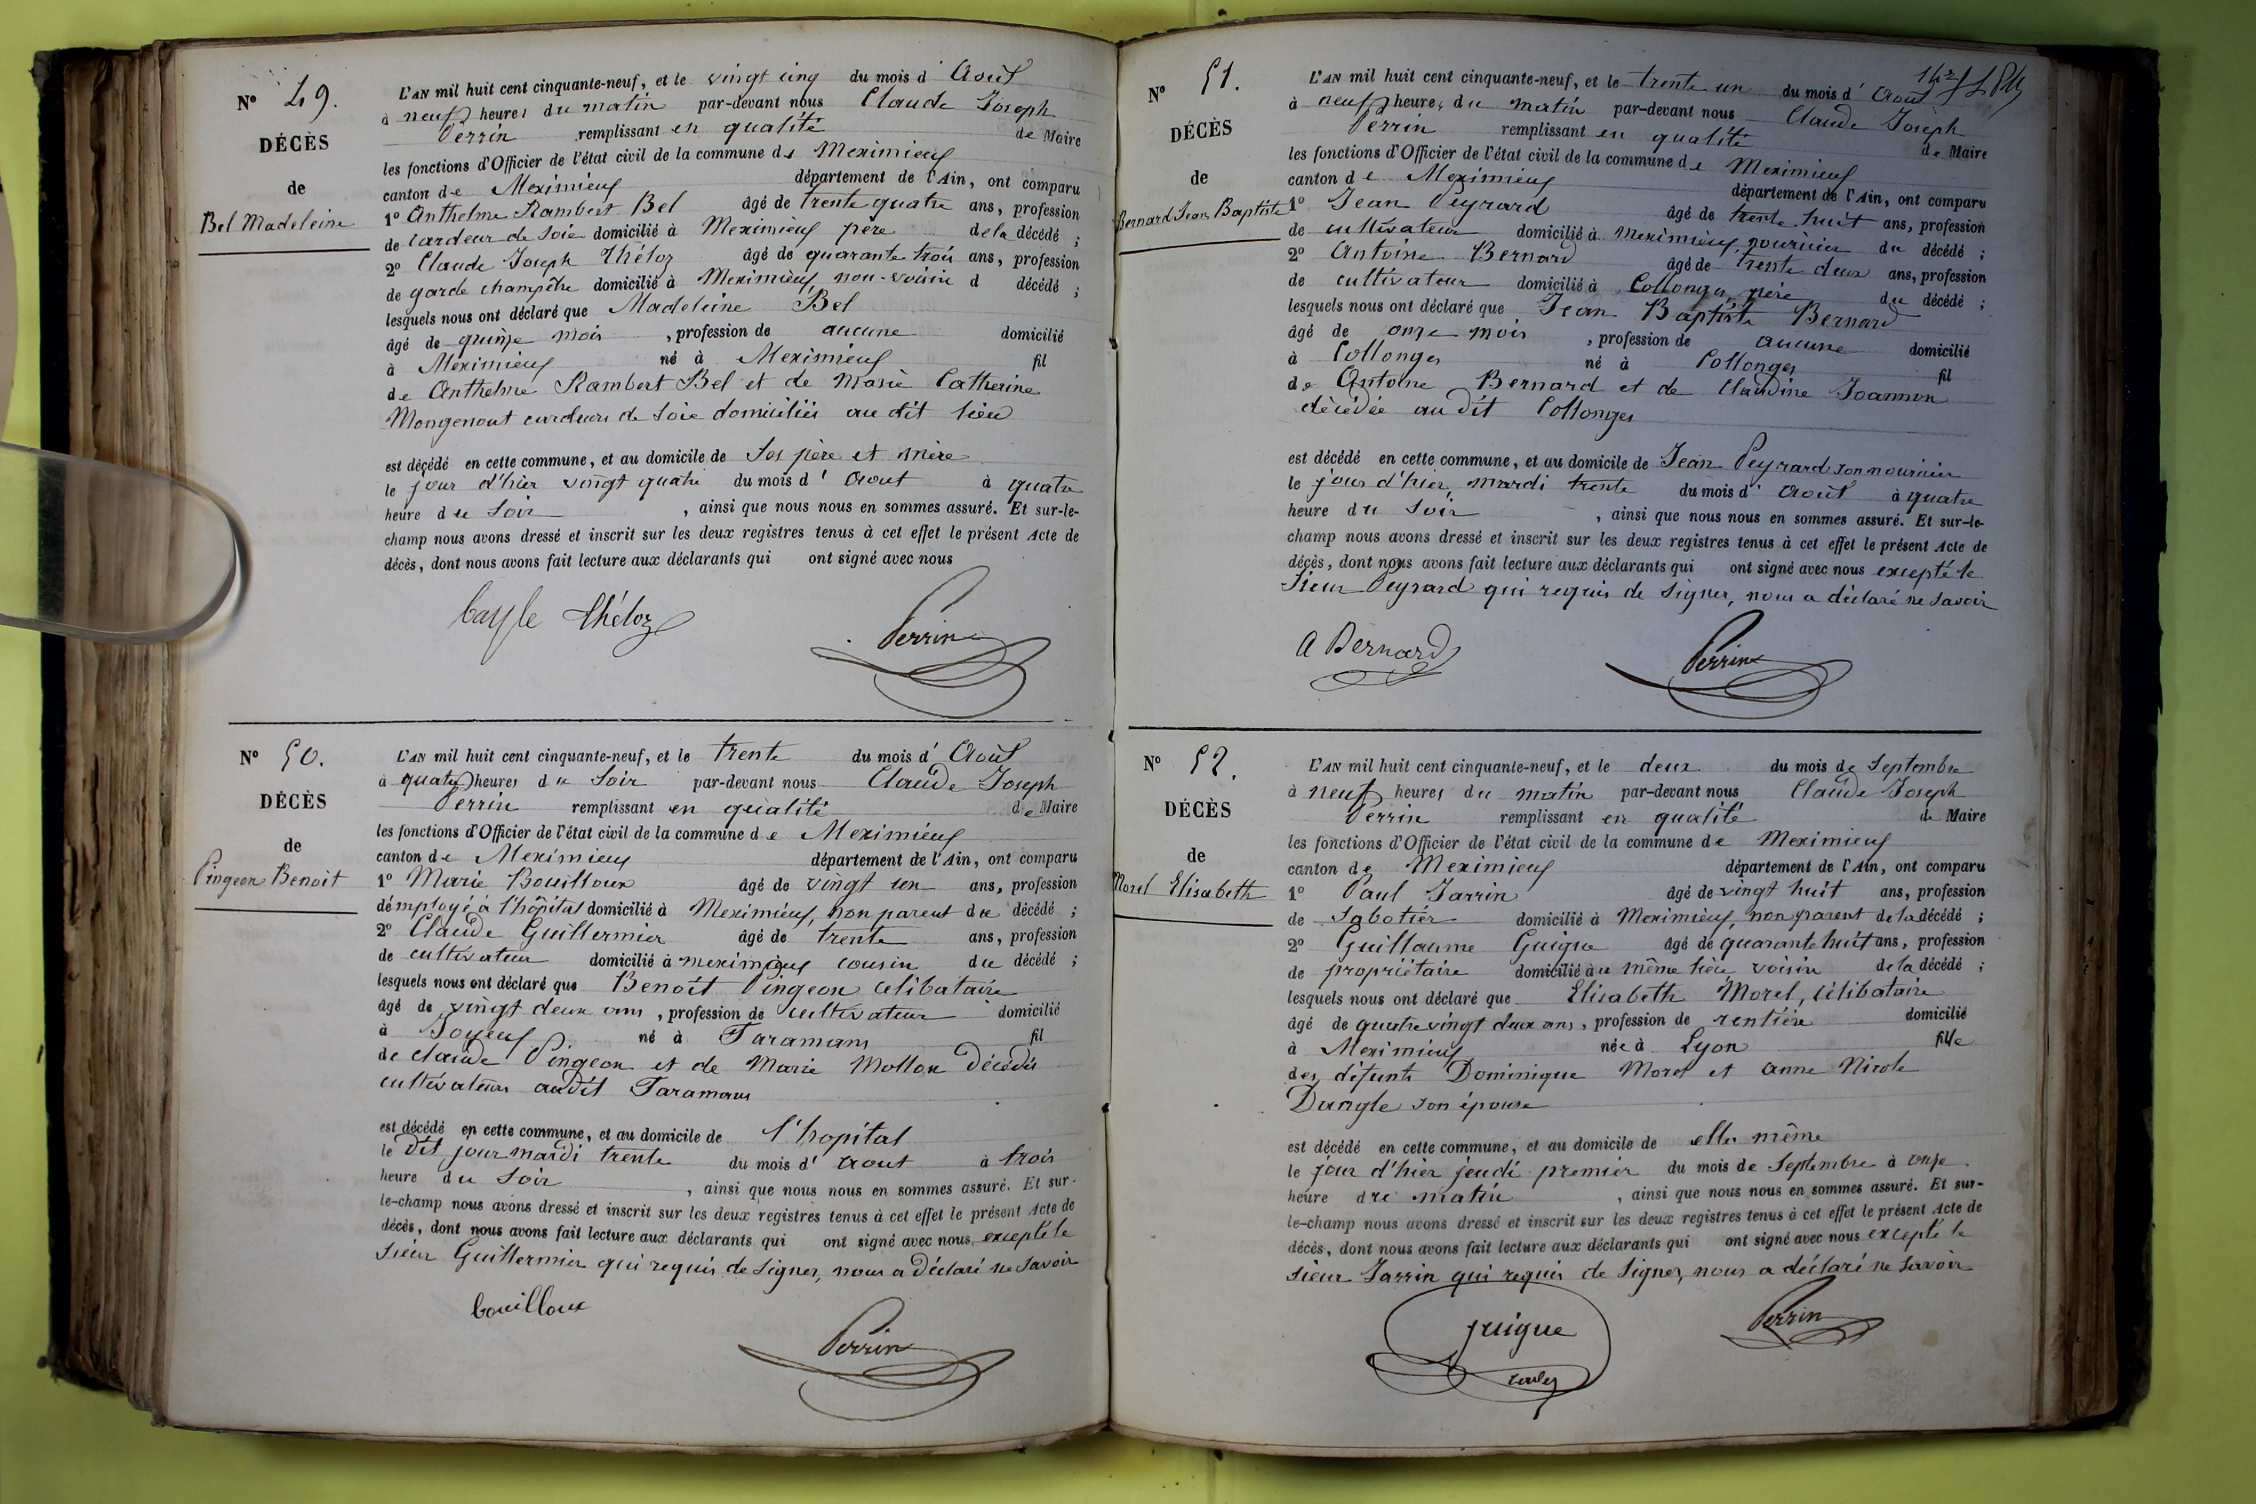 N° 49.
DÉCÈS
de
Bel Madeleine
L'AN mil huit cent cinquante-neuf, et le vingt cinq du mois d' Août
à neuf heures du matin par-devant nous Claude Joseph
Perrin remplissant en qualité de Maire
les fonctions d'Officier de l'état civil de la commune de Meximieux
canton de Meximieux département de l'Ain, ont comparu
1° Anthelme Rambert Bel âgé de trente quatre ans, profession
de cardeur de soie domicilié à Meximieux père de la décédé ;
2° Claude Joseph Théloz âgé de quarante trois ans, profession
de garde champêtre domicilié à Meximieux non-voisin d décédé ;
lesquels nous ont déclaré que Madeleine Bel
âgé de quinze mois , profession de aucune domicilié
à Meximieux né à Meximieux fil
de Anthelme Rambert Bel et de Marie Catherine
Mongenout cardeurs de soie domiciliés au dit lieu
est décédé en cette commune, et au domicile de ses père et mère
le jour d'hier vingt quatre du mois d' Aout à quatre
heure du soir , ainsi que nous nous en sommes assuré. Et sur-le-
champ nous avons dressé et inscrit sur les deux registres tenus à cet effet le présent Acte de
décès, dont nous avons fait lecture aux déclarants qui ont signé avec nous
théloz Perrin
N° 50.
DÉCÈS
de
Pingeon Benoit
L'AN mil huit cent cinquante-neuf, et le trente du mois d' Août
à quatre heures du soir par-devant nous Claude Joseph
Perrin remplissant en qualité de Maire
les fonctions d'Officier de l'état civil de la commune de Meximieux
canton de Meximieux département de l'Ain, ont comparu
1° Marie Bouilloux âgé de vingt un ans, profession
d'employé à l'hôpital domicilié à Meximieux, non parent du décédé ;
2° Claude Guillermier âgé de trente ans, profession
de cultivateur domicilié à meximieux cousin du décédé ;
lesquels nous ont déclaré que Benoit Pingeon célibataire
âgé de vingt deux ans , profession de cultivateur domicilié
à Joyeux né à Faramans fil
de Claude Pingeon et de Marie Mollon décédés
cultivateurs audit Faramans
est décédé en cette commune, et au domicile de l'hopital
le dit jour mardi trente du mois d' Aout à trois
heure du soir , ainsi que nous nous en sommes assuré. Et sur-
le-champ nous avons dressé et inscrit sur les deux registres tenus à cet effet le présent Acte de
décès, dont nous avons fait lecture aux déclarants qui ont signé avec nous excepté le
sieur Guillermier qui requis de signer, nous a déclaré ne savoir
bouilloux
Perrin
N° 51.
DÉCÈS
de
Bernard Jean Baptiste
L'AN mil huit cent cinquante-neuf, et le trente un du mois d' Août
à neuf heures du matin par-devant nous Claude Joseph
Perrin remplissant en qualité de Maire
les fonctions d'Officier de l'état civil de la commune de Meximieux
canton de Meximieux département de l'Ain, ont comparu
1° Jean Peyrard âgé de trente huit ans, profession
de cultivateur domicilié à meximieux, nourricier du décédé ;
2° Antoine Bernard âgé de trente deux ans, profession
de cultivateur domicilié à Collonges, père du décédé ;
lesquels nous ont déclaré que Jean Baptiste Bernard
âgé de onze mois , profession de aucune domicilié
à Collonges né à Collonges fil
de Antoine Bernard et de Claudine Joannon
décédée au dit Collonges
est décédé en cette commune, et au domicile de Jean Peyrard son nourricier
le jour d'hier, mardi trente du mois d' Août à quatre
heure du soir , ainsi que nous nous en sommes assuré. Et sur-le-
champ nous avons dressé et inscrit sur les deux registres tenus à cet effet le présent Acte de
décès, dont nous avons fait lecture aux déclarants qui ont signé avec nous excepté le
sieur Peyrard qui requis de signer, nous a déclaré ne savoir
A Bernard Perrin
N° 52.
DÉCÈS
de
Morel Elisabeth
L'AN mil huit cent cinquante-neuf, et le deux du mois de Septembre
à neuf heures du matin par-devant nous Claude Joseph
Perrin remplissant en qualité de Maire
les fonctions d'Officier de l'état civil de la commune de Meximieux
canton de Meximieux département de l'Ain, ont comparu
1° Paul Jarrin âgé de vingt huit ans, profession
de Sabotier domicilié à Meximieux, non parent de la décédé ;
2° Guillaume Guigue âgé de quarante huit ans, profession
de propriétaire domicilié au même lieu, voisin de la décédé ;
lesquels nous ont déclaré que Elisabeth Morel, célibataire
âgé de quatre vingt deux ans , profession de rentière domicilié
à Meximieux née à Lyon fille
des défunts Dominique Morel et Anne Nicole
Dungle son épouse
est décédé en cette commune, et au domicile de elle même
le jour d'hier jeudi premier du mois de Septembre à onze
heure du matin , ainsi que nous nous en sommes assuré. Et sur-
le-champ nous avons dressé et inscrit sur les deux registres tenus à cet effet le présent Acte de
décès, dont nous avons fait lecture aux déclarants qui ont signé avec nous excepté le
sieur Jarrin qui requis de signer, nous a déclaré ne savoir
guigue
Perrin